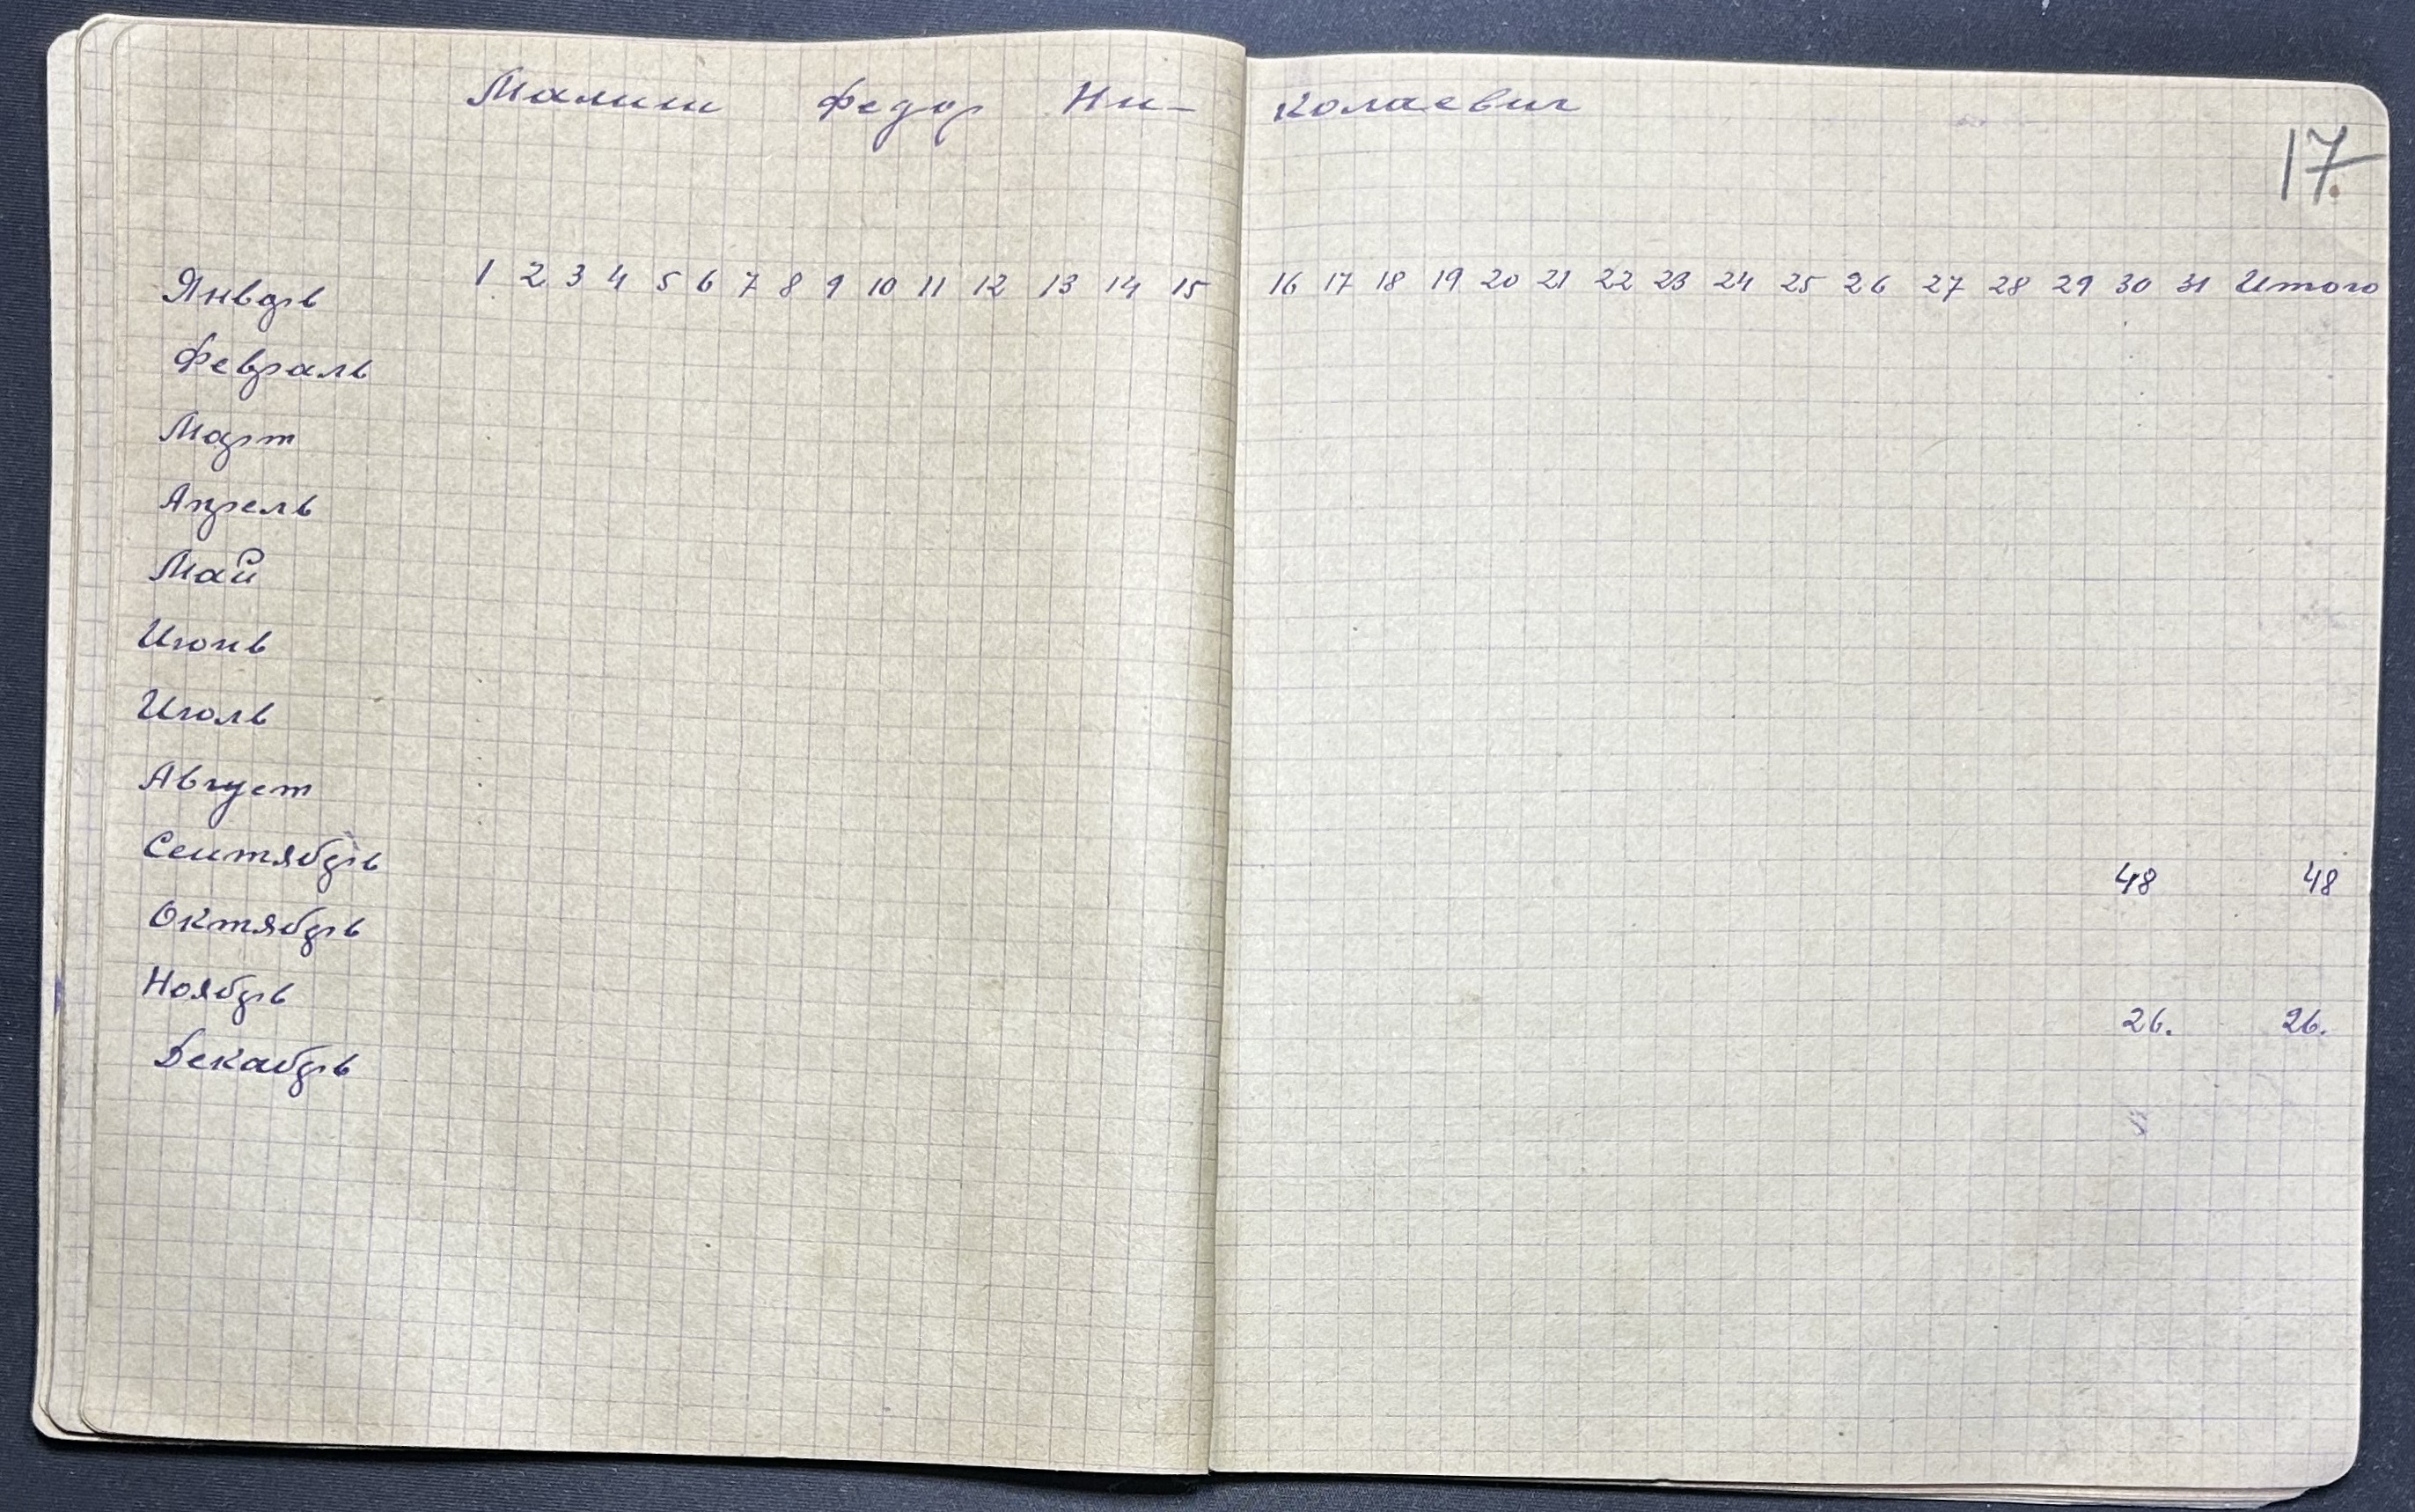 Малиш Федор Ни- колаевич
17.
Январь 1 2 3 4 5 6 7 8 9 10 11 12 13 14 15 16 17 18 19 20 21 22 23 24 25 26 27 28 29 30 31 Итого
Февраль
Март
Апрель
Май
Июнь
Июль
Август
Сентябрь 48 48
Октябрь
Ноябрь 26. 26.
Декабрь